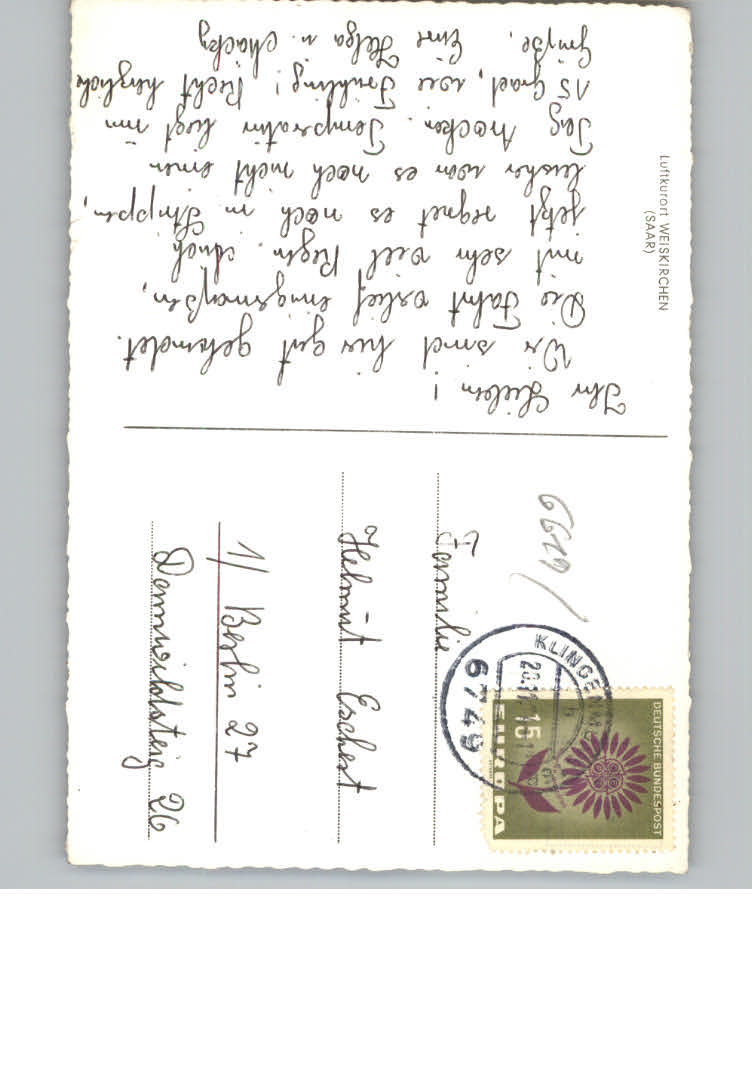 Luftkurort WEISKIRCHEN
(SAAR)
Ihr Lieben!
Wir sind hier gut gelandet.
Die Fahrt verlief einigermaßen,
mit sehr viel Regen. Auch
jetzt regnet es noch in Strippen,
bisher war es noch nicht einen
Tag trocken. Temperatur liegt um
15 Grad, wie Frühling! Recht herzliche
Grüße, Eure Helga u. Macky
6619/
DEUTSCHE BUNDESPOST
15
EUROPA
KLINGENM
6749
Familie
Helmut Eschert
1/ Berlin 27
Damwildsteig 26